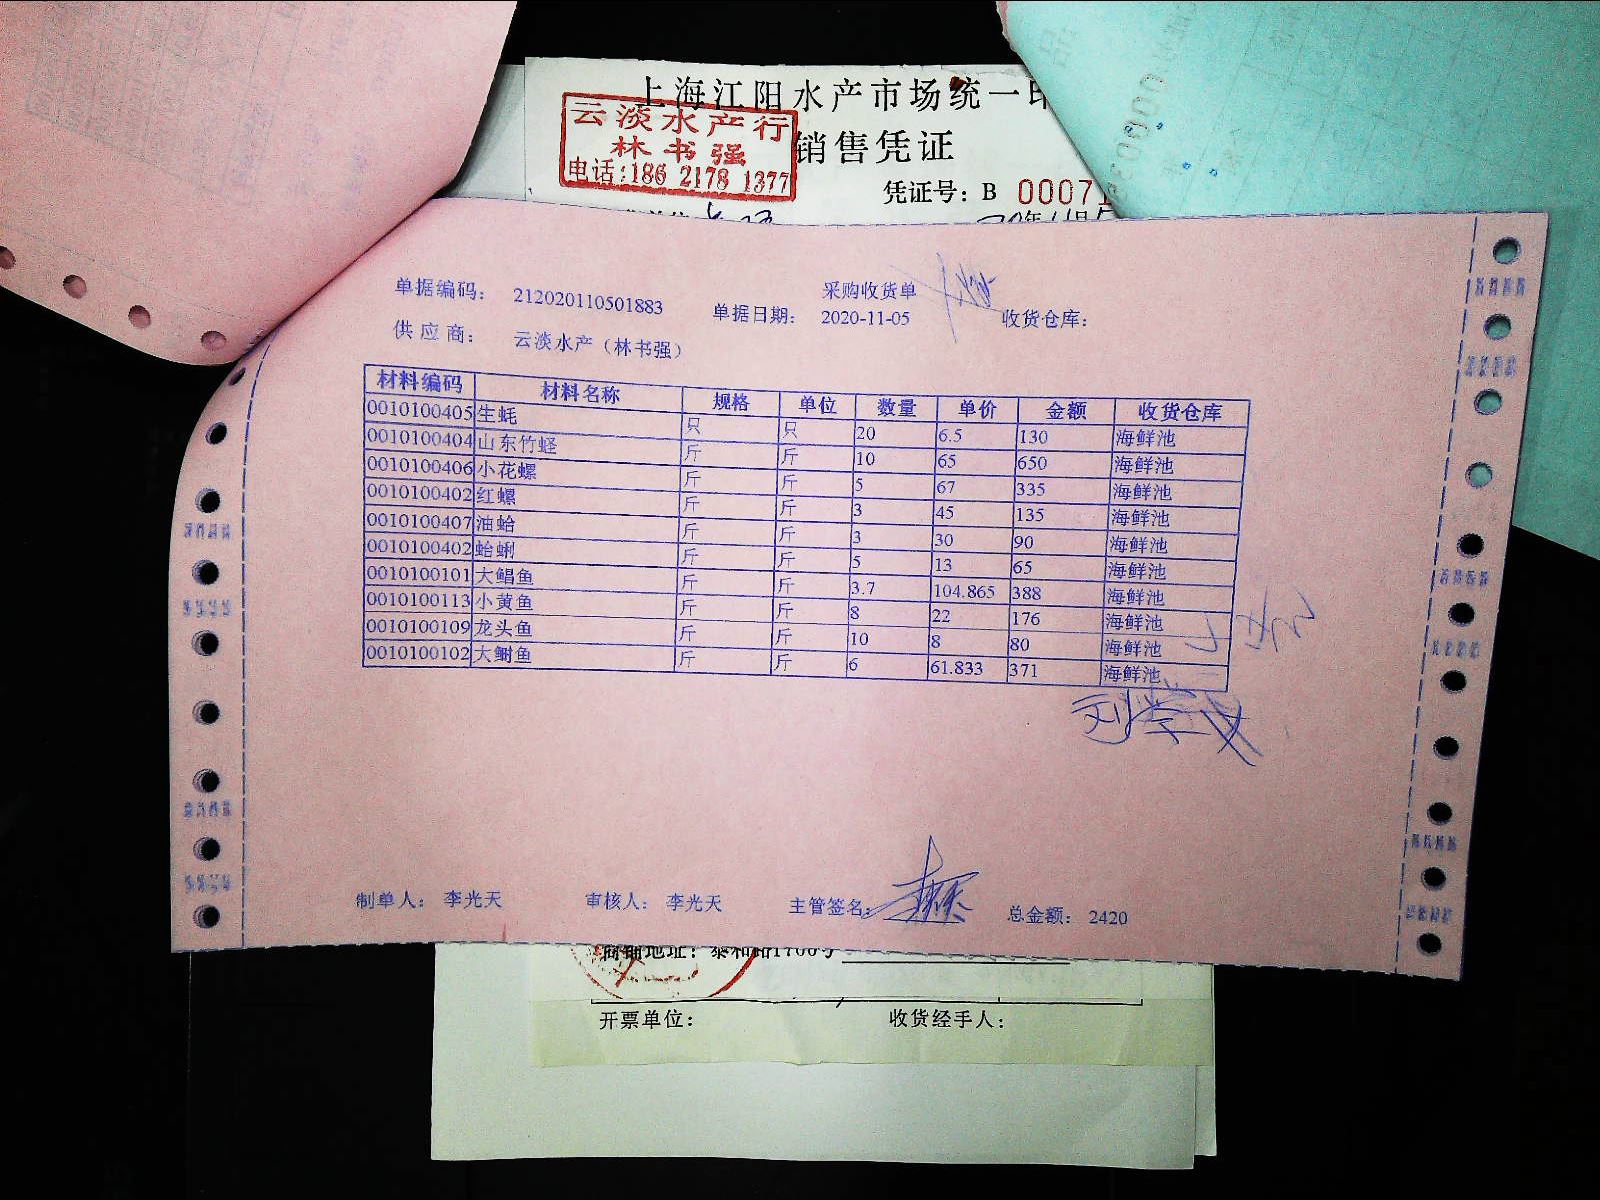 上海江阳水产市场统一印
云淡水产行
林书强
电话:186 2178 1377
销售凭证
凭证号: B 00071
采购收货单
单据编码: 212020110501883 单据日期: 2020-11-05 收货仓库:
供应商: 云淡水产（林书强）
材料编码 材料名称 规格 单位 数量 单价 金额 收货仓库
0010100405 生蚝 只 只 20 6.5 130 海鲜池
0010100404 山东竹蛏 斤 斤 10 65 650 海鲜池
0010100406 小花螺 斤 斤 5 67 335 海鲜池
0010100402 红螺 斤 斤 3 45 135 海鲜池
0010100407 油蛤 斤 斤 3 30 90 海鲜池
0010100402 蛤蜊 斤 斤 5 13 65 海鲜池
0010100101 大鲳鱼 斤 斤 3.7 104.865 388 海鲜池
0010100113 小黄鱼 斤 斤 8 22 176 海鲜池
0010100109 龙头鱼 斤 斤 10 8 80 海鲜池
0010100102 大鲥鱼 斤 斤 6 61.833 371 海鲜池
制单人: 李光天 审核人: 李光天 主管签名: 总金额: 2420
商铺地址: 泰和路1700号
开票单位: 收货经手人: